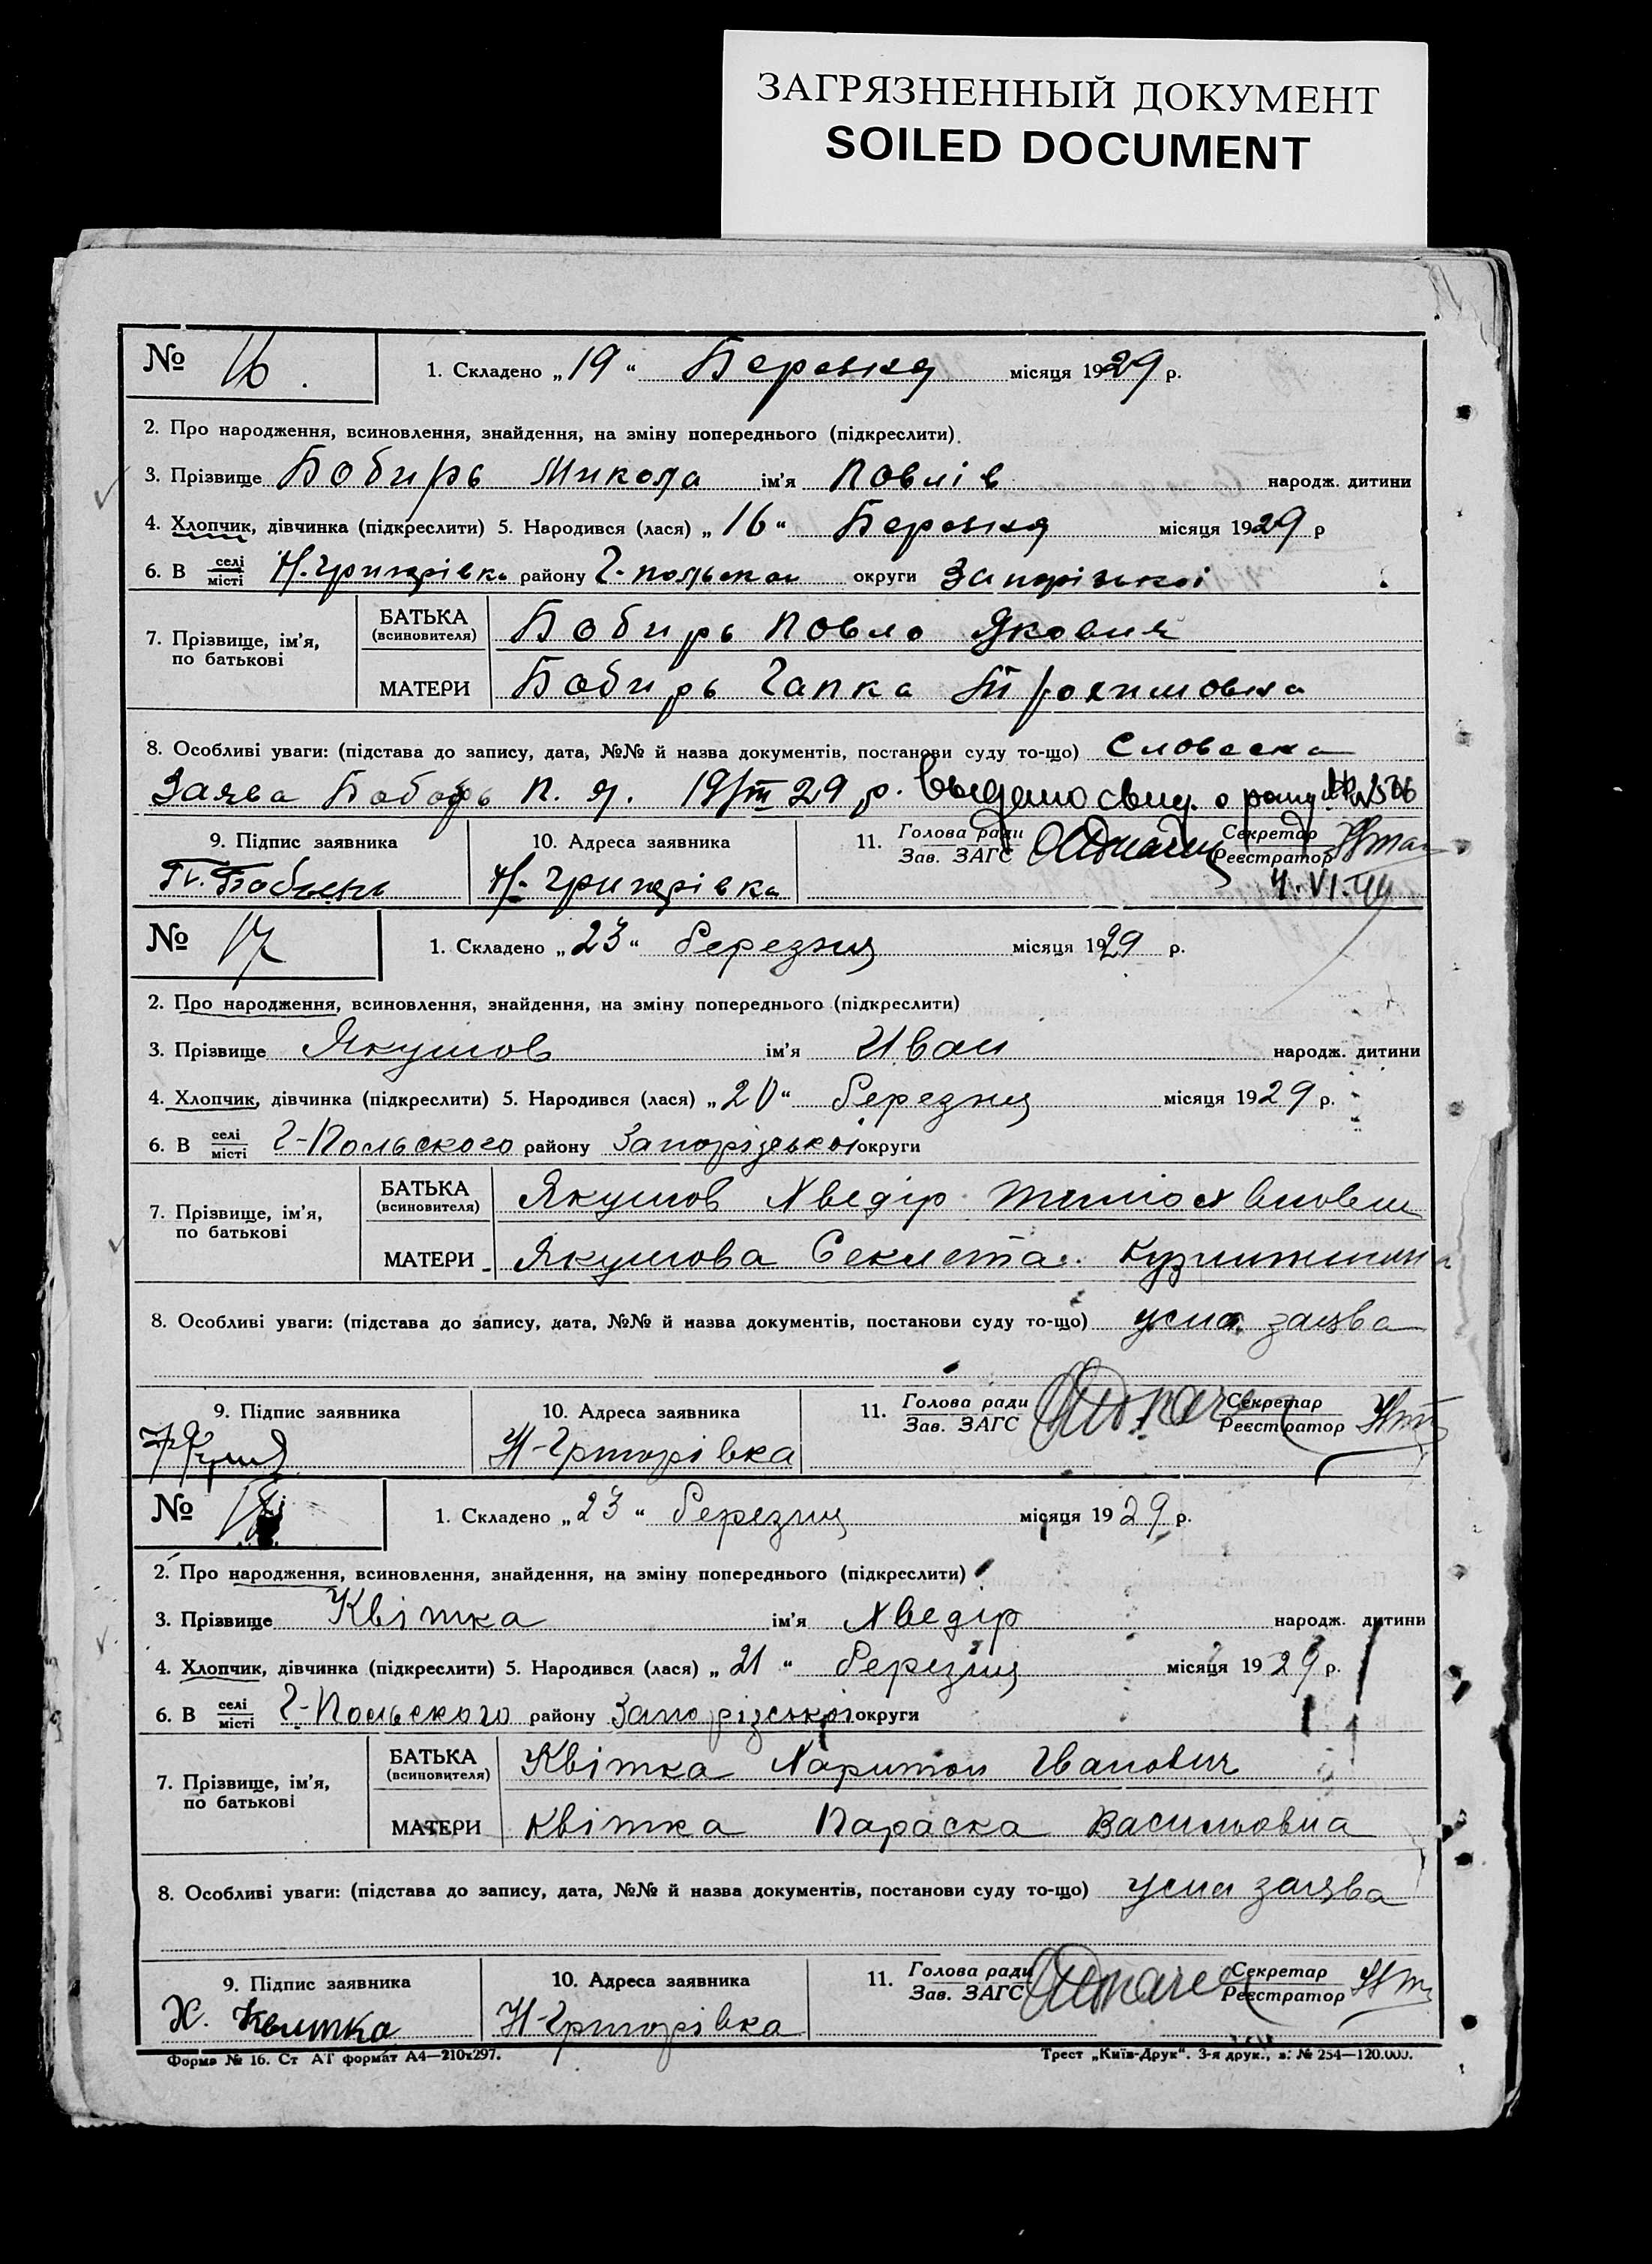 ЗАГРЯЗНЕННЫЙ ДОКУМЕНТ
SOILED DOCUMENT
№ 16. 1. Складено „19“ Березня місяця 1929 р.
2. Про народження, всиновлення, знайдення, на зміну попереднього (підкреслити).
3. Прізвище Бобирь Микола ім'я Повлів народж. дитини
4. Хлопчик, дівчинка (підкреслити) 5. Народився (лася) „16“ Березня місяця 1929 р
6. В селі/місті Н. Григорівка району Г-польском округи Запорізькоі
7. Прізвище, ім'я, по батькові БАТЬКА (всиновителя) Бобирь Повло Якович
МАТЕРИ Бобирь Гапка Трохимовна
8. Особливі уваги: (підстава до запису, дата, №№ й назва документів, постанови суду то-що) Словесна
Заява Бобирь П. Я. 19/III 29 р. Выдано свид. о рожд.
9. Підпис заявника 10. Адреса заявника 11. Голова ради Секретар
Зав. ЗАГС Реєстратор
П. Бобирь Н. Григорівка 4.VI.
№ 17 1. Складено „23“ березня місяця 1929 р.
2. Про народження, всиновлення, знайдення, на зміну попереднього (підкреслити)
3. Прізвище Якушов ім'я Иван народж. дитини
4. Хлопчик, дівчинка (підкреслити) 5. Народився (лася) „20“ березня місяця 1929 р.
6. В селі/місті Г-Польского району Запорізькоі округи
7. Прізвище, ім'я, по батькові БАТЬКА (всиновителя) Якушов Хведір
МАТЕРИ Якушова Секлета
8. Особливі уваги: (підстава до запису, дата, №№ й назва документів, постанови суду то-що) усна заява
9. Підпис заявника 10. Адреса заявника 11. Голова ради Секретар
Зав. ЗАГС Реєстратор
Н-Григорівка
№ 18 1. Складено „23“ березня місяця 1929 р.
2. Про народження, всиновлення, знайдення, на зміну попереднього (підкреслити)
3. Прізвище Квітка ім'я Хведір народж. дитини
4. Хлопчик, дівчинка (підкреслити) 5. Народився (лася) „21“ березня місяця 1929 р.
6. В селі/місті Г-Польского району Запорізськоі округи
7. Прізвище, ім'я, по батькові БАТЬКА (всиновителя) Квітка Харитон Иванович
МАТЕРИ Квітка Параска Васильовна
8. Особливі уваги: (підстава до запису, дата, №№ й назва документів, постанови суду то-що) усна заява
9. Підпис заявника 10. Адреса заявника 11. Голова ради Секретар
Зав. ЗАГС Реєстратор
Х. Квитка Н-Григорівка
Форма № 16. Ст АТ формат А4—210х297. Трест „Київ-Друк“. 3-я друк., з. № 254—120.000.